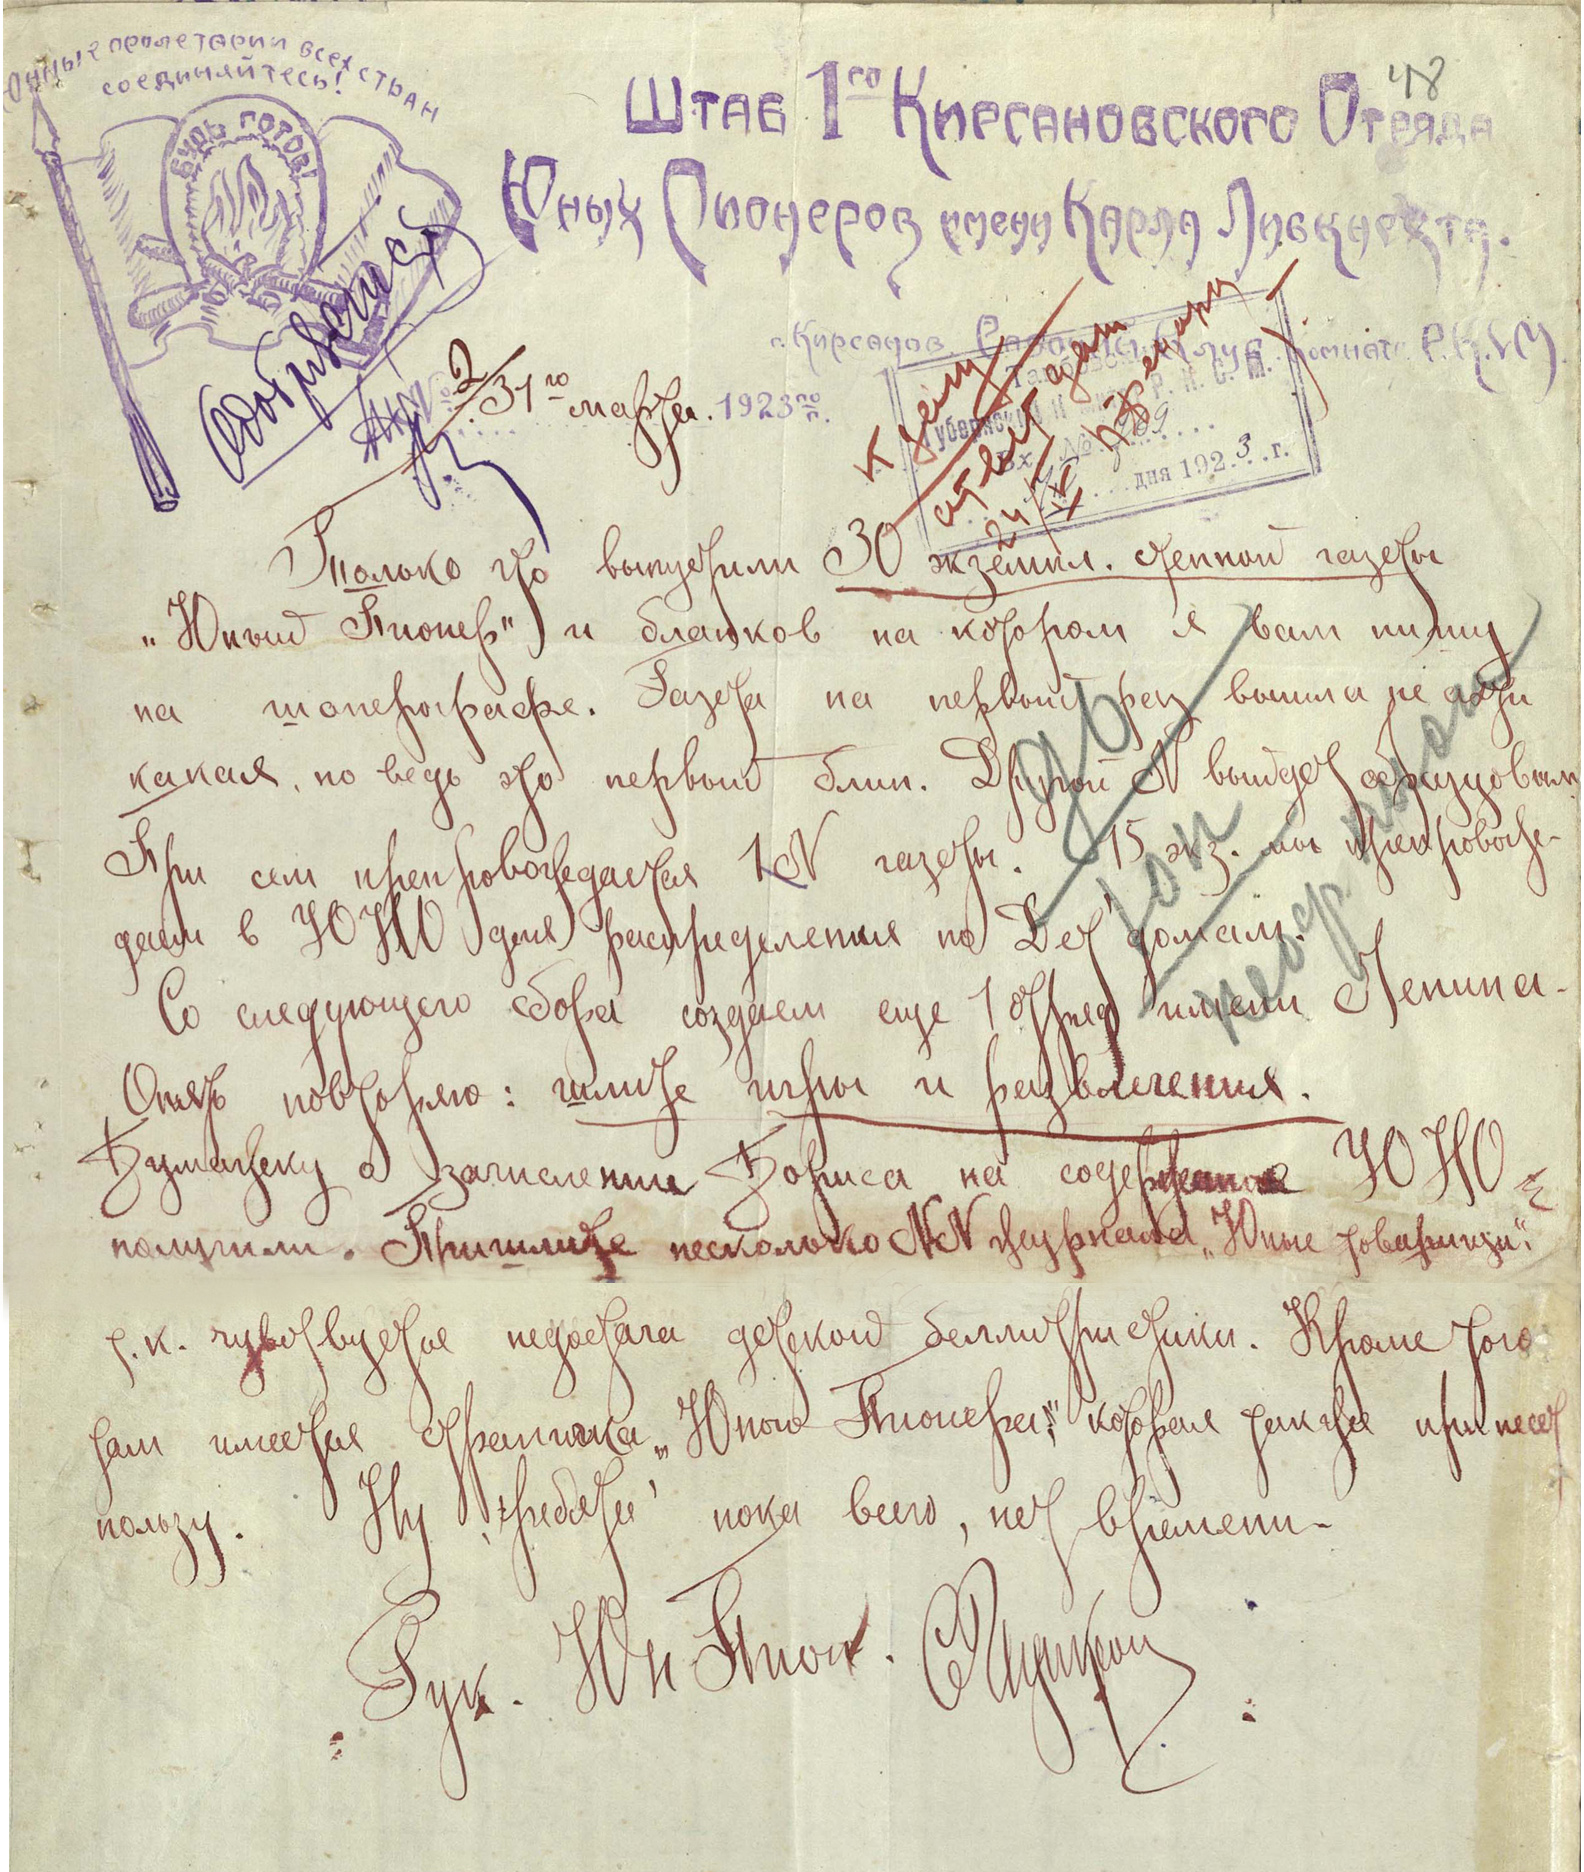 Юные пролетарии всех стран
соединяйтесь!
Будь готов!
48
Штаб 1го Кирсановского Отряда
Юных Пионеров имени Карла Либкнехта.
г. Кирсанов Клуб комната Р.К.С.М.
№ 2
31го марта. 1923го г.
К делу
Губернский Р.К.С.М.
Вх. №
дня 1923 г.
Только что выпустили 30 экземпл. стенной газеты
„Юный Пионер" и бланков на котором я вам пишу
на шапирографе. Газета на первый раз вышла не ахти
какая, но ведь это первый блин. Другой N выйдет образцовым.
При сем препровождается 1 N газеты. 15 экз. мы препровож-
даем в УОНО для распределения по Дет домам.
Со следующего сбора создаем еще 1 отряд имени Ленина.
Опять повторяю: шлите игры и развлечения.
Бумажку о зачислении Бориса на содержание УОНО
получили. Пришлите несколько NN журнала „Юные товарищи".
т.к. чувствуется недостача детской беллитристики. Кроме того
там имеется страничка „Юного Пионера", которая также принесет
пользу. Ну, ребята, пока всего, нет времени.
Рук. Юн Пион.